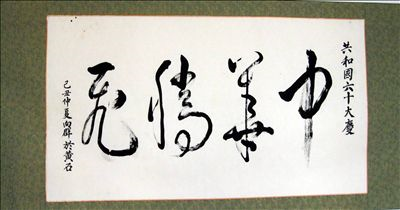 共和國六十大慶
中華騰飛
己丑仲夏向群於黃石